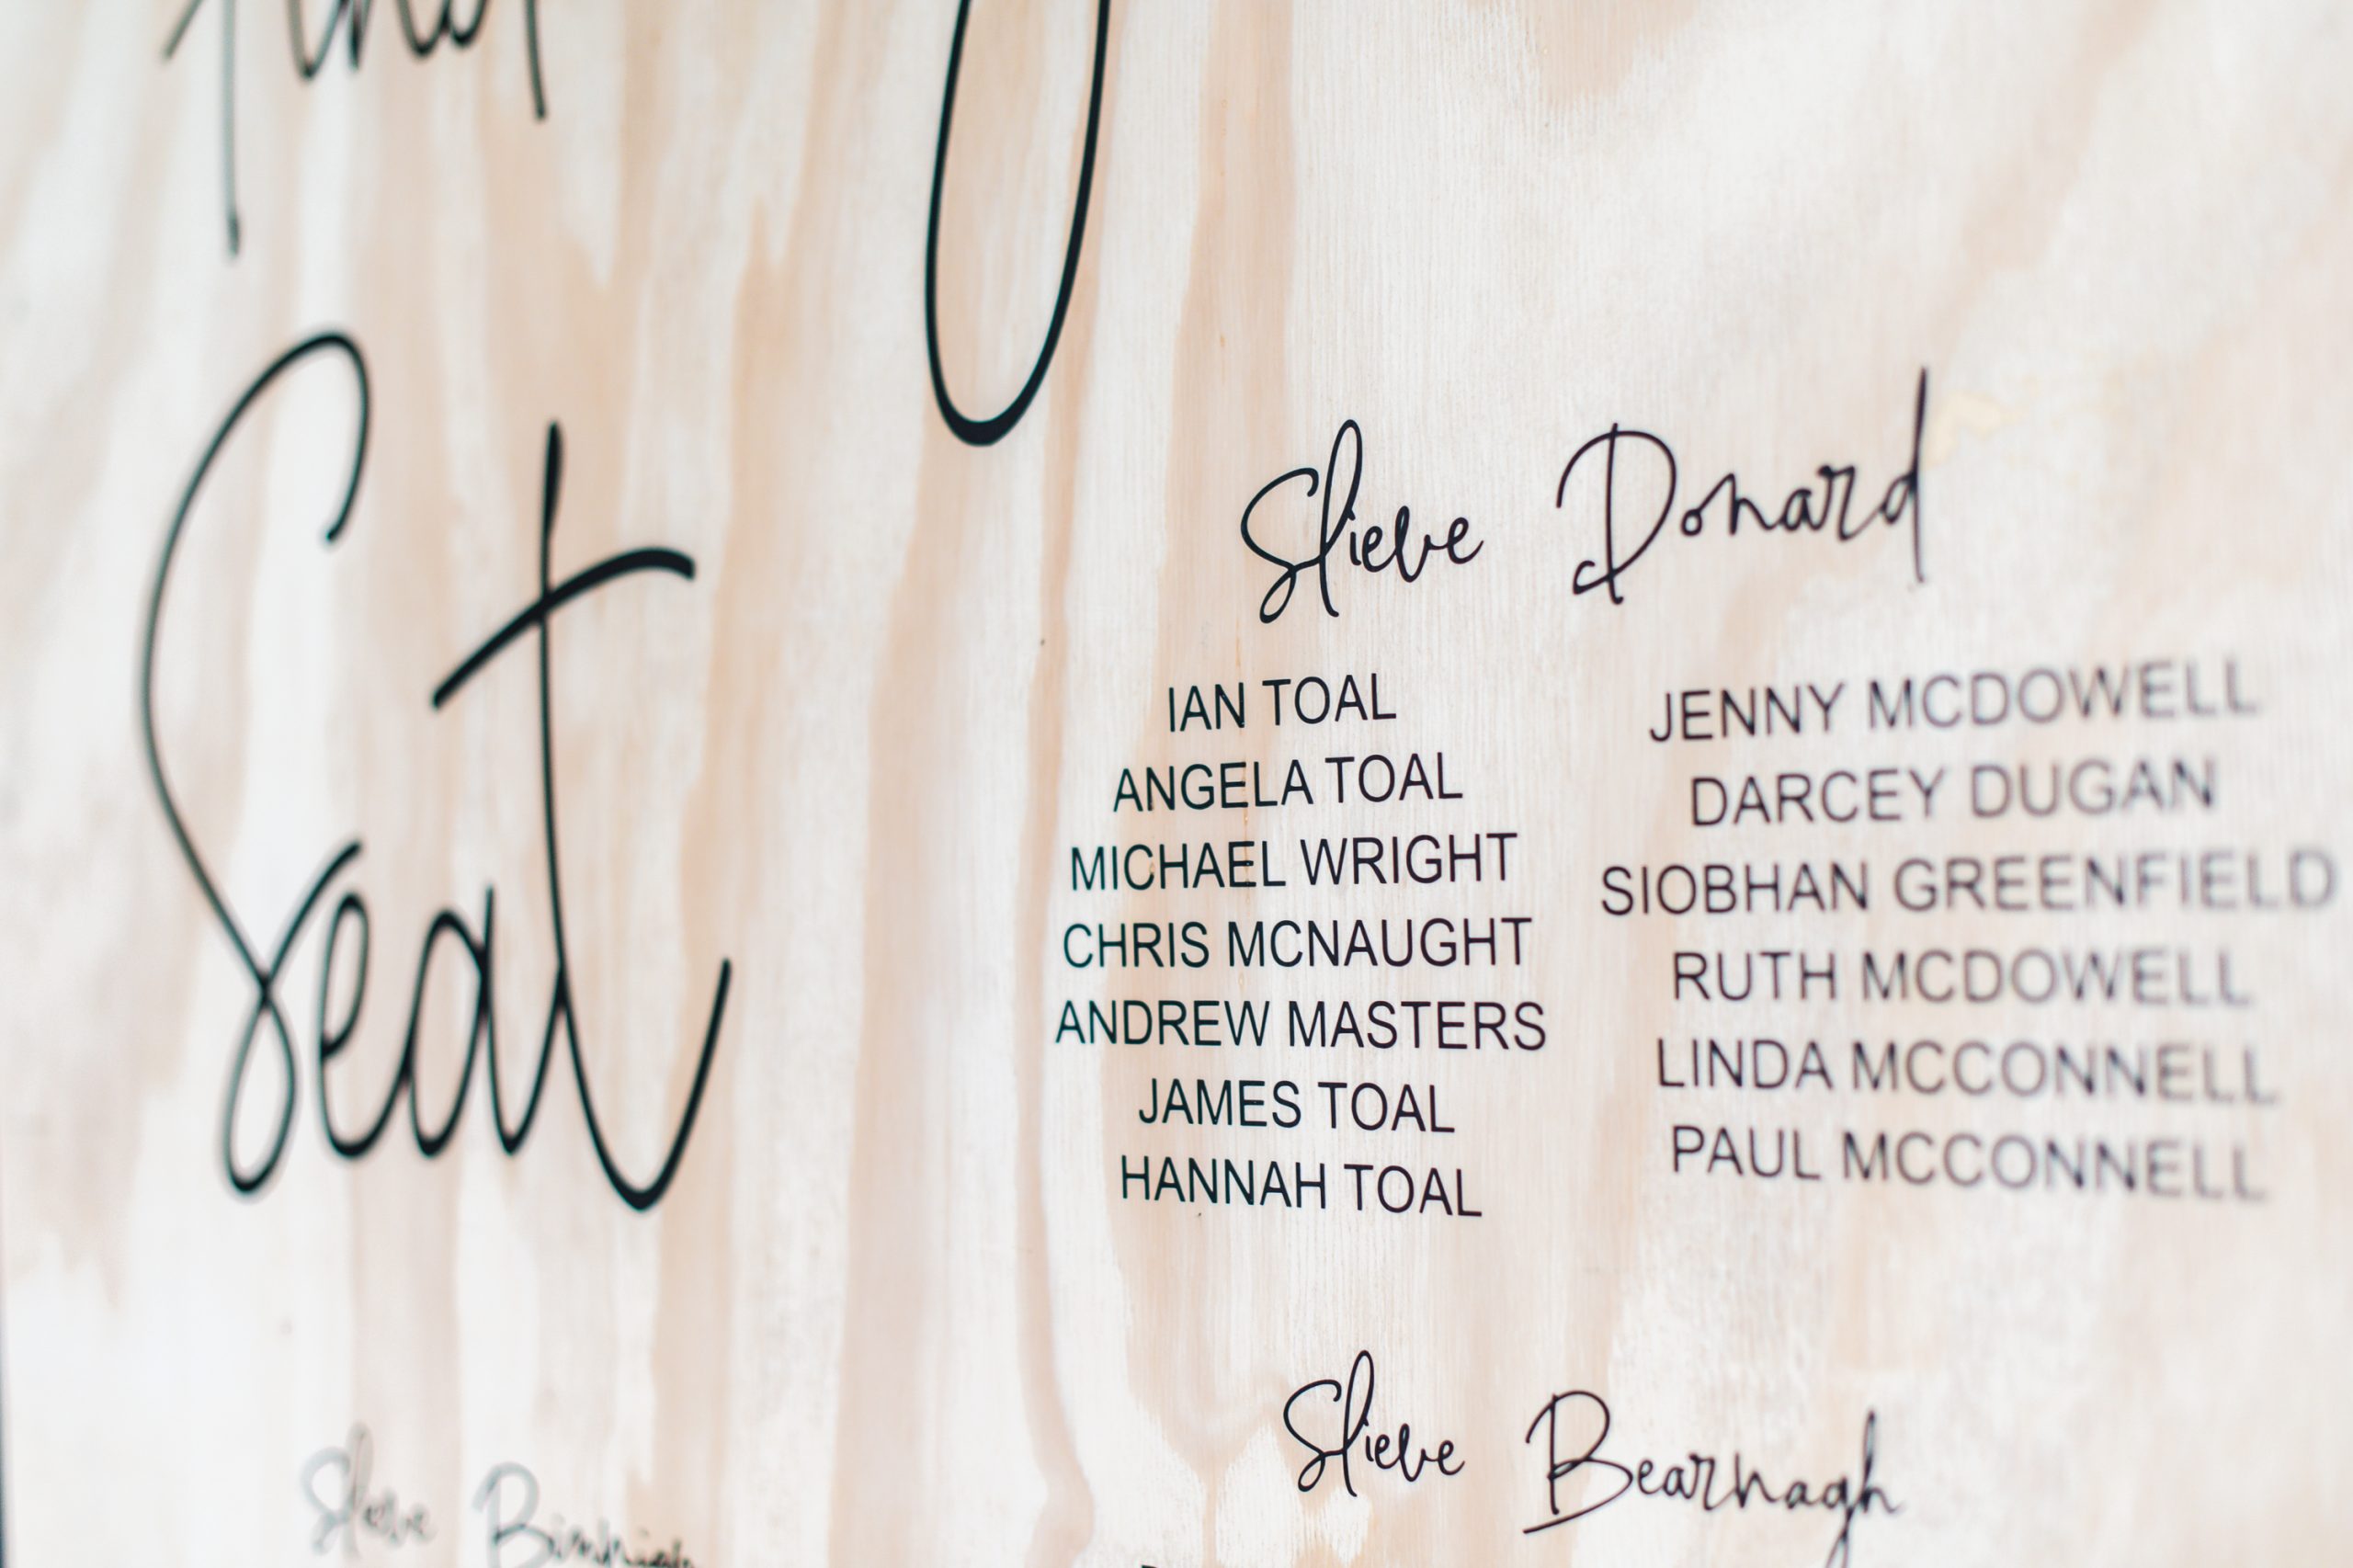 find
Seat
Slieve Donard
IAN TOAL
ANGELA TOAL
MICHAEL WRIGHT
CHRIS MCNAUGHT
ANDREW MASTERS
JAMES TOAL
HANNAH TOAL
JENNY MCDOWELL
DARCEY DUGAN
SIOBHAN GREENFIELD
RUTH MCDOWELL
LINDA MCCONNELL
PAUL MCCONNELL
Slieve Bearnagh
Slieve Binnian